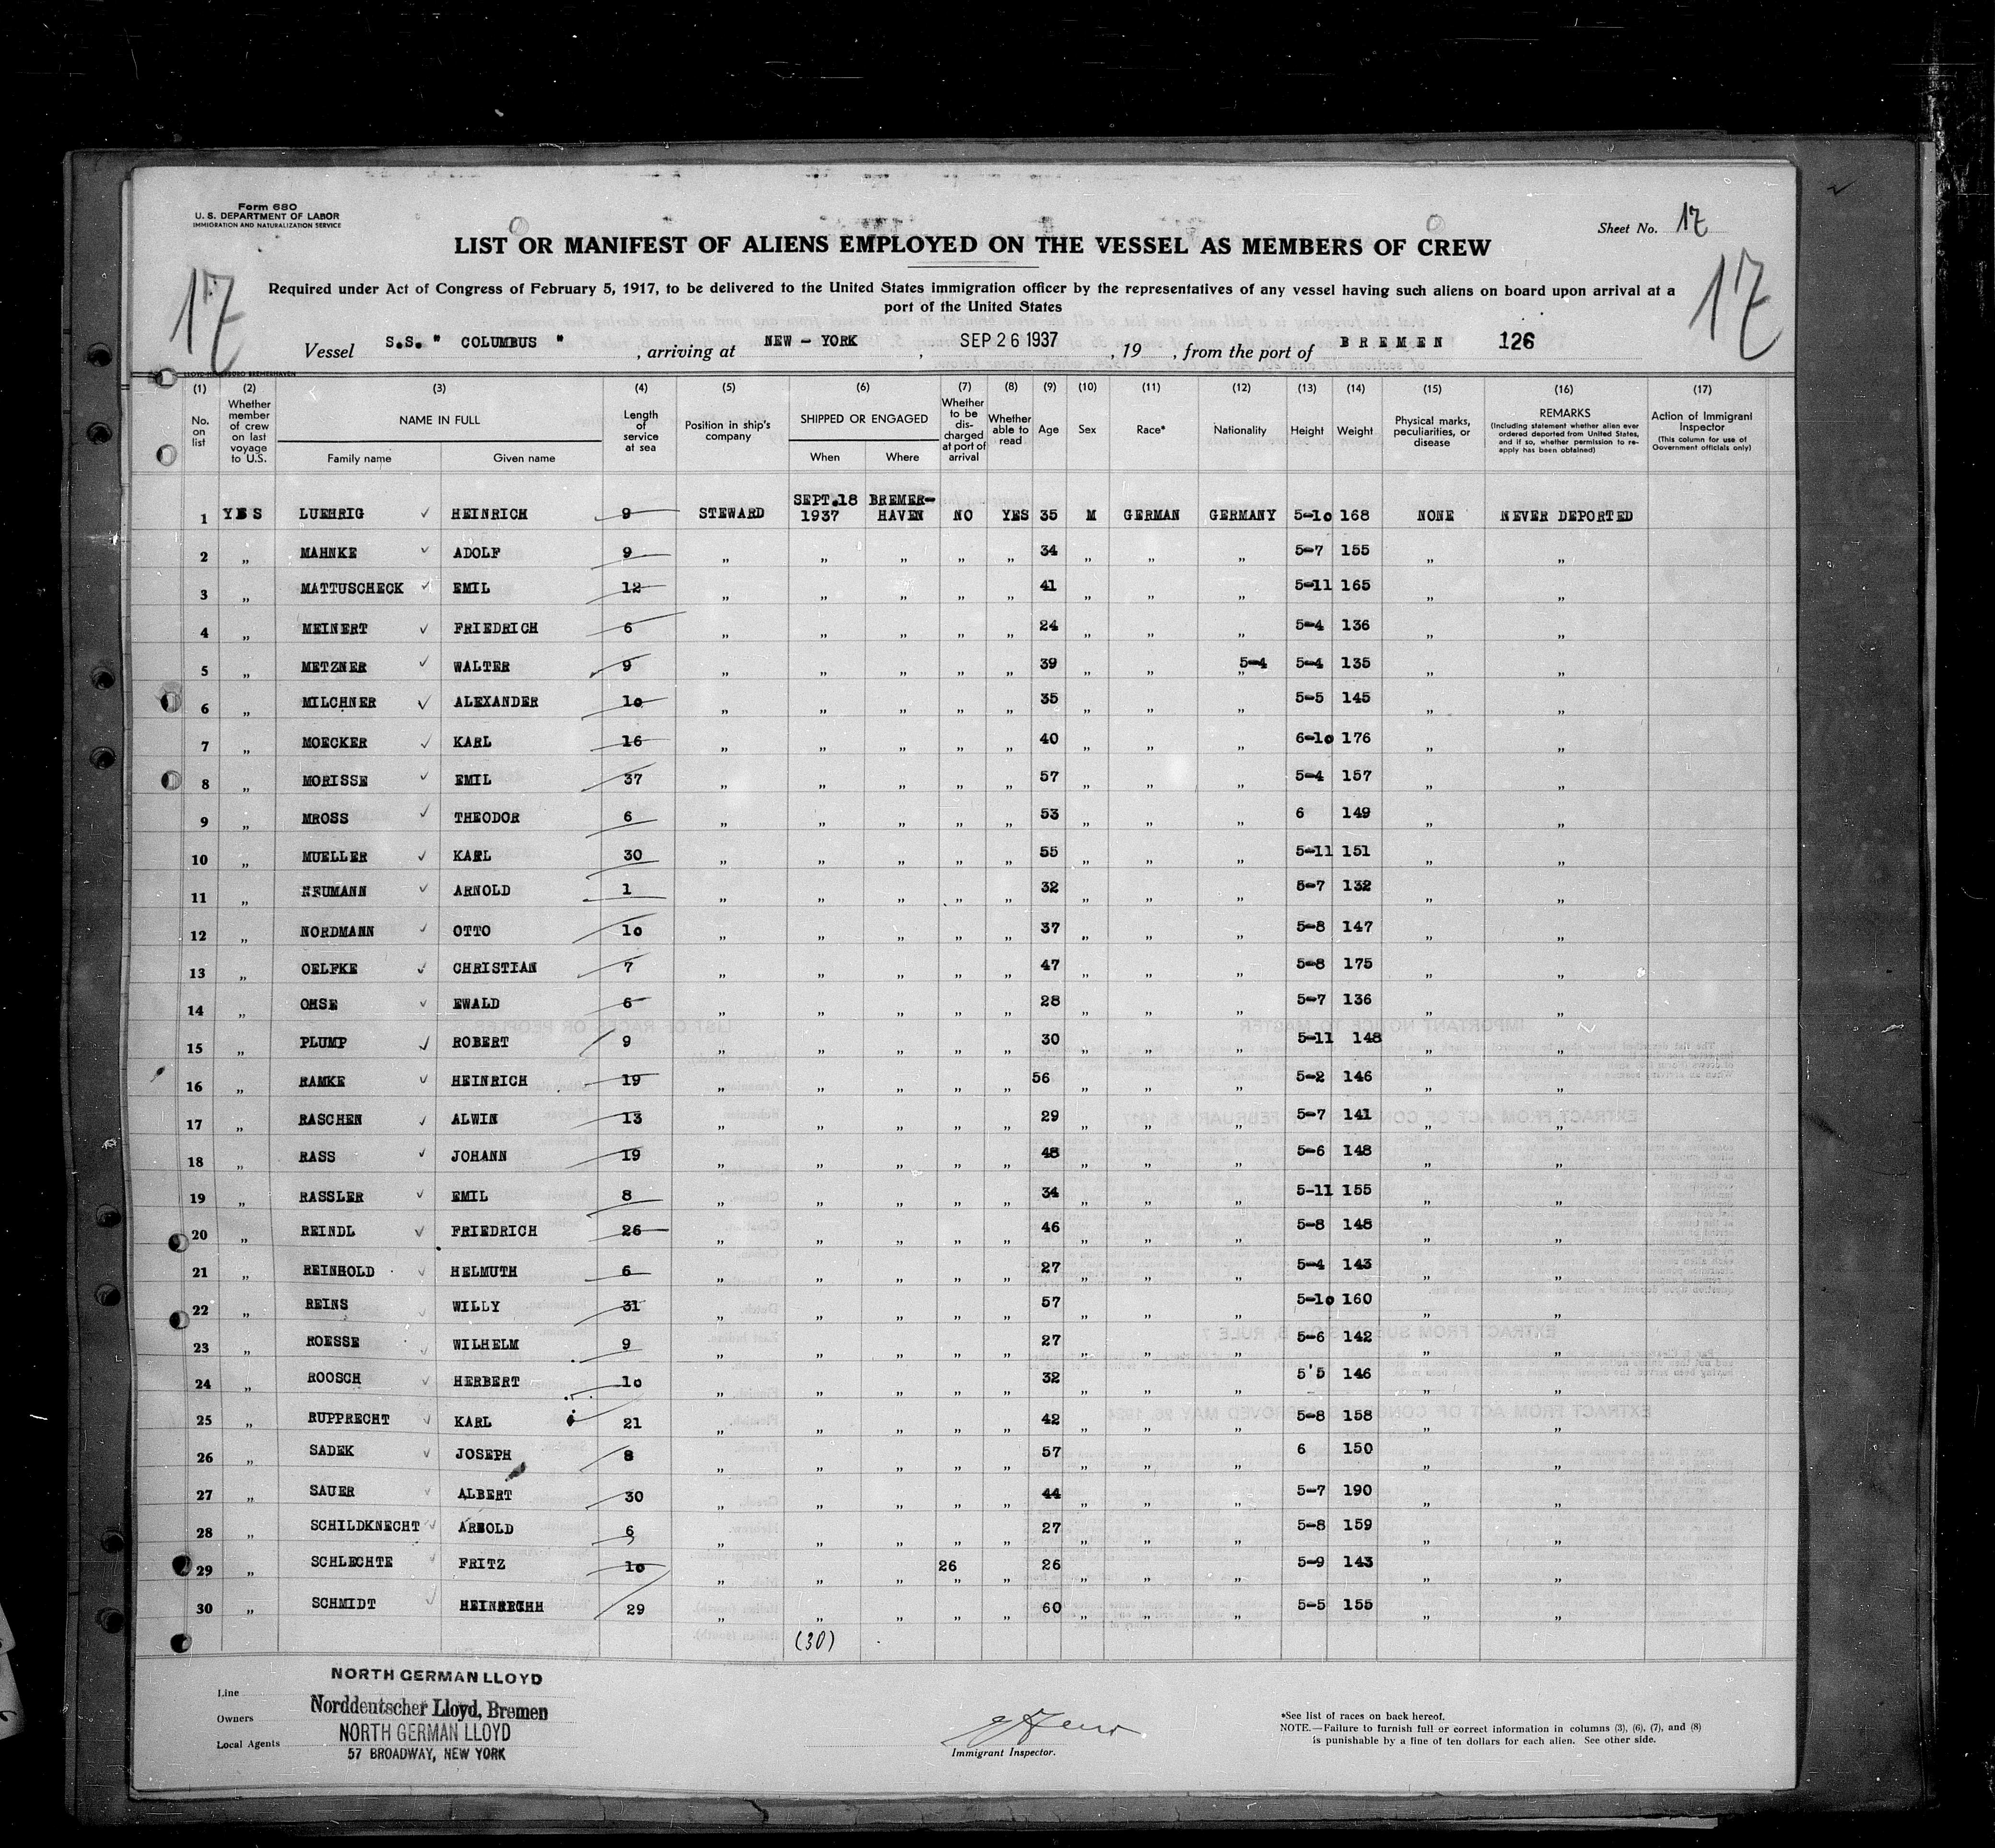 Form 680
U. S. DEPARTMENT OF LABOR
IMMIGRATION AND NATURALIZATION SERVICE
Sheet No. 17
LIST OR MANIFEST OF ALIENS EMPLOYED ON THE VESSEL AS MEMBERS OF CREW
17 17
Required under Act of Congress of February 5, 1917, to be delivered to the United States immigration officer by the representatives of any vessel having such aliens on board upon arrival at a
port of the United States
Vessel S.S. " COLUMBUS " , arriving at NEW - YORK , SEP 26 1937 , 19 , from the port of BREMEN 126
(1) (2) (3) (4) (5) (6) (7) (8) (9) (10) (11) (12) (13) (14) (15) (16) (17)
No. on list
Whether member of crew on last voyage to U.S.
NAME IN FULL
Family name Given name
Length of service at sea
Position in ship's company
SHIPPED OR ENGAGED
When Where
Whether to be discharged at port of arrival
Whether able to read
Age
Sex
Race*
Nationality
Height
Weight
Physical marks, peculiarities, or disease
REMARKS
(Including statement whether alien ever ordered deported from United States, and if so, whether permission to reapply has been obtained)
Action of Immigrant Inspector
(This column for use of Government officials only)
1 YES LUEHRIG ✓ HEINRICH 9 STEWARD SEPT.18 1937 BREMER-HAVEN NO YES 35 M GERMAN GERMANY 5-10 168 NONE NEVER DEPORTED
2 „ MAHNKE ✓ ADOLF 9 „ „ „ „ „ 34 „ „ „ 5-7 155 „ „
3 „ MATTUSCHECK ✓ EMIL 12 „ „ „ „ „ 41 „ „ „ 5-11 165 „ „
4 „ MEINERT ✓ FRIEDRICH 6 „ „ „ „ „ 24 „ „ „ 5-4 136 „ „
5 „ METZNER ✓ WALTER 9 „ „ „ „ „ 39 „ „ 5-4 „ 5-4 135 „ „
6 „ MILCHNER ✓ ALEXANDER 10 „ „ „ „ „ 35 „ „ „ 5-5 145 „ „
7 „ MOECKER ✓ KARL 16 „ „ „ „ „ 40 „ „ „ 6-10 176 „ „
8 „ MORISSE ✓ EMIL 37 „ „ „ „ „ 57 „ „ „ 5-4 157 „ „
9 „ MROSS ✓ THEODOR 6 „ „ „ „ „ 53 „ „ „ 6 149 „ „
10 „ MUELLER ✓ KARL 30 „ „ „ „ „ 55 „ „ „ 5-11 151 „ „
11 „ NEUMANN ✓ ARNOLD 1 „ „ „ „ „ 32 „ „ „ 5-7 132 „ „
12 „ NORDMANN ✓ OTTO 10 „ „ „ „ „ 37 „ „ „ 5-8 147 „ „
13 „ OELFKE ✓ CHRISTIAN 7 „ „ „ „ „ 47 „ „ „ 5-8 175 „ „
14 „ OHSE ✓ EWALD 6 „ „ „ „ „ 28 „ „ „ 5-7 136 „ „
15 „ PLUMP ✓ ROBERT 9 „ „ „ „ „ 30 „ „ „ 5-11 148 „ „
16 „ RAMKE ✓ HEINRICH 19 „ „ „ „ „ 56 „ „ „ 5-2 146 „ „
17 „ RASCHEN ✓ ALWIN 13 „ „ „ „ „ 29 „ „ „ 5-7 141 „ „
18 „ RASS ✓ JOHANN 19 „ „ „ „ „ 48 „ „ „ 5-6 148 „ „
19 „ RASSLER ✓ EMIL 8 „ „ „ „ „ 34 „ „ „ 5-11 155 „ „
20 „ REINDL ✓ FRIEDRICH 26 „ „ „ „ „ 46 „ „ „ 5-8 148 „ „
21 „ REINHOLD ✓ HELMUTH 6 „ „ „ „ „ 27 „ „ „ 5-4 143 „ „
22 „ REINS ✓ WILLY 31 „ „ „ „ „ 57 „ „ „ 5-10 160 „ „
23 „ ROESSE ✓ WILHELM 9 „ „ „ „ „ 27 „ „ „ 5-6 142 „ „
24 „ ROOSCH ✓ HERBERT 10 „ „ „ „ „ 32 „ „ „ 5'5 146 „ „
25 „ RUPPRECHT ✓ KARL 21 „ „ „ „ „ 42 „ „ „ 5-8 158 „ „
26 „ SADEK ✓ JOSEPH 8 „ „ „ „ „ 57 „ „ „ 6 150 „ „
27 „ SAUER ✓ ALBERT 30 „ „ „ „ „ 44 „ „ „ 5-7 190 „ „
28 „ SCHILDKNECHT ✓ ARNOLD 6 „ „ „ „ „ 27 „ „ „ 5-8 159 „ „
29 „ SCHLECHTE ✓ FRITZ 10 „ „ „ 26 „ „ 26 „ „ „ 5-9 143 „ „
30 „ SCHMIDT ✓ HEINRICH 29 „ „ „ „ „ 60 „ „ „ 5-5 155 „ „
(30)
Line NORTH GERMAN LLOYD
Owners Norddeutscher Lloyd, Bremen
Local Agents NORTH GERMAN LLOYD
57 BROADWAY, NEW YORK
Immigrant Inspector.
*See list of races on back hereof.
NOTE.—Failure to furnish full or correct information in columns (3), (6), (7), and (8)
is punishable by a fine of ten dollars for each alien. See other side.